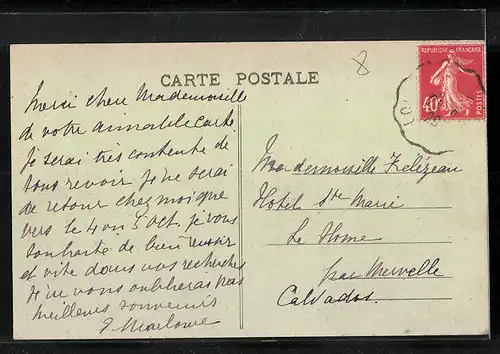 CARTE POSTALE
8
REPUBLIQUE FRANÇAISE
40c
POSTES
Merci chère Mademoiselle
de votre aimable carte
je serai très contente de
vous revoir je ne serai
de retour chez moi que
vers le 4 ou 5 oct. je vous
souhaite de bien réussir
et vite dans vos recherches
Je ne vous oublierai pas
meilleurs souvenirs
Mademoiselle
Hotel Ste Marie
Le Home
par Merville
Calvados.